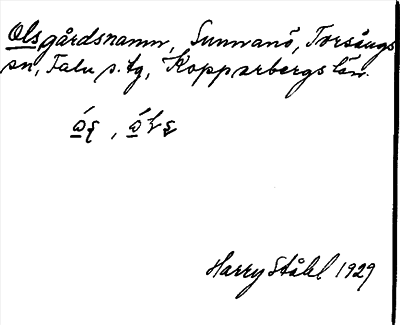 Ols gårdsnamn, Sunnanö, Torsångs
sn, Falu s. tg, Kopparbergs län.
Harry Ståhl 1929